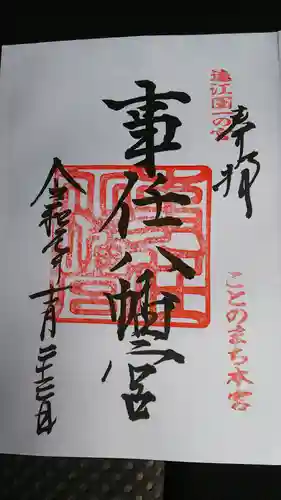 遠江国一の宮
奉拝
事任八幡宮
ことのまち本宮
令和元年十一月二十三日